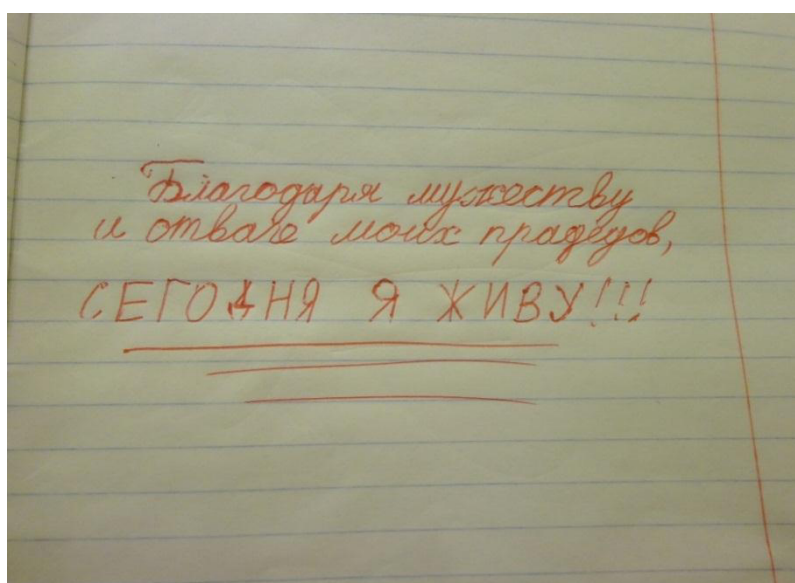 Благодаря мужеству
и отваге моих прадедов,
СЕГОДНЯ Я ЖИВУ!!!